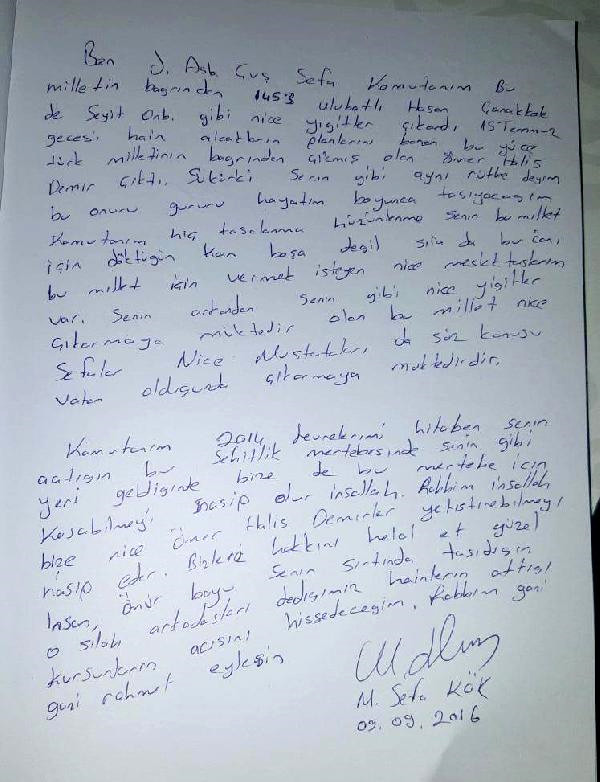 Ben J. Asb. Çvş Sefa Komutanım Bu
milletin bağrından 1453 Ulubatlı Hasan Çanakkale
de Seyit Onb. gibi nice yiğitler çıkardı 15 Temmuz
gecesi hain alçakların planlarını bozan bu yüce
türk milletinin bağrından çıkmış olan Ömer Halis
Demir çıktı. Şükürki Senin gibi aynı rütbe deyim
bu onuru gururu hayatım boyunca taşıyacağım
Komutanım hiç tasalanma hüzünlenme Senin bu millet
için döktüğün kan boşa değil sın da bu canı
bu millet için vermek isteyen nice meslektaşların
var. Senin arkandan Senin gibi nice yiğitler
çıkarmaya müktedir olan bu millet nice
Sefalar Nice Mustafaları da söz konusu
vatan olduğunda çıkarmaya muktedirdir.
Komutanım 2014 devrelerimi hitaben senin
açtığın bu Şehitlik mertebesinde sinin gibi
yeri geldiğinde bize de bu mertebe için
Koşabilmeyi nasip olur inşallah. Rabbim inşallah
bize nice Ömer Halis Demirler yetiştirebilmeyi
nasip eder. Bizlere hakkını helal et güzel
İnsan, Ömür boyu Senin sırtında taşıdığın
o silah arkadaşları dediğimiz hainlerin attığı
kurşunların acısını hissedeceğim. Rabbim gani
gani rahmet eylesin
M. Sefa KÖK
09.09.2016